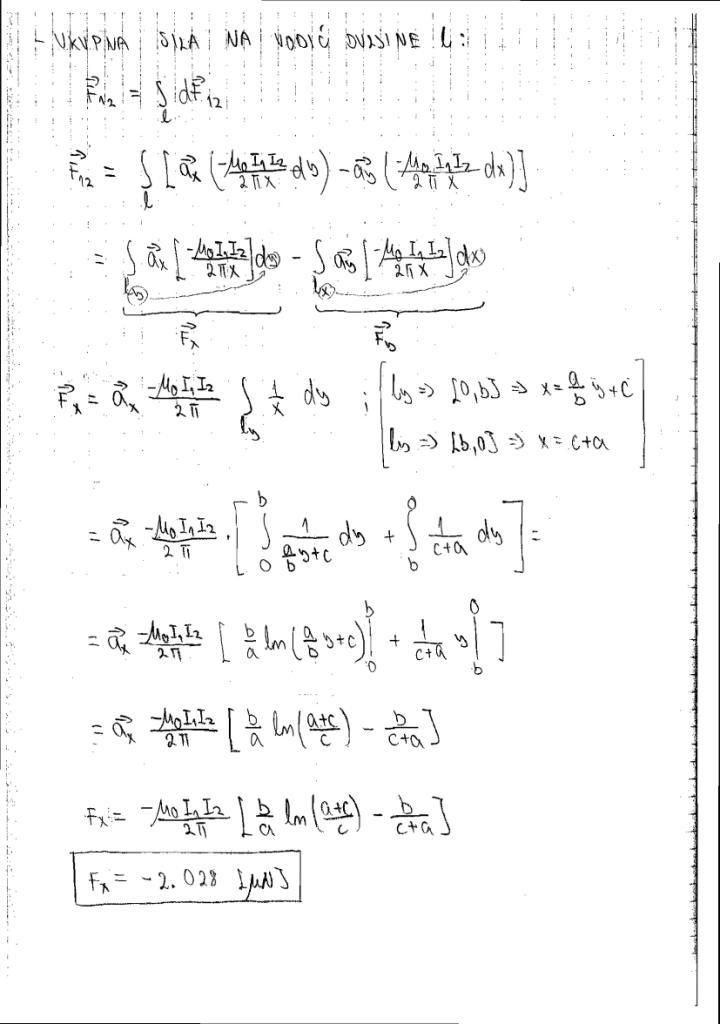 - UKUPNA SILA NA VODIČ DULJINE l:
F⃗₁₂ = ∫_l dF⃗₁₂
F⃗₁₂ = ∫_l [a⃗x (-μ₀I₁I₂/2πx dy) - a⃗y (-μ₀I₁I₂/2πx dx)]
= ∫_ly a⃗x [-μ₀I₁I₂/2πx] dy - ∫_lx a⃗y [-μ₀I₁I₂/2πx] dx
F⃗x F⃗y
F⃗x = a⃗x -μ₀I₁I₂/2π ∫_ly 1/x dy ; [ly => [0,b] => x = a/b y+c
ly => [b,0] => x = c+a]
= a⃗x -μ₀I₁I₂/2π · [∫_0^b 1/(a/b y+c) dy + ∫_b^0 1/(c+a) dy] =
= a⃗x -μ₀I₁I₂/2π [b/a ln(a/b y+c)|_0^b + 1/(c+a) y|_b^0]
= a⃗x -μ₀I₁I₂/2π [b/a ln((a+c)/c) - b/(c+a)]
Fx = -μ₀I₁I₂/2π [b/a ln((a+c)/c) - b/(c+a)]
Fx = -2.028 [μN]